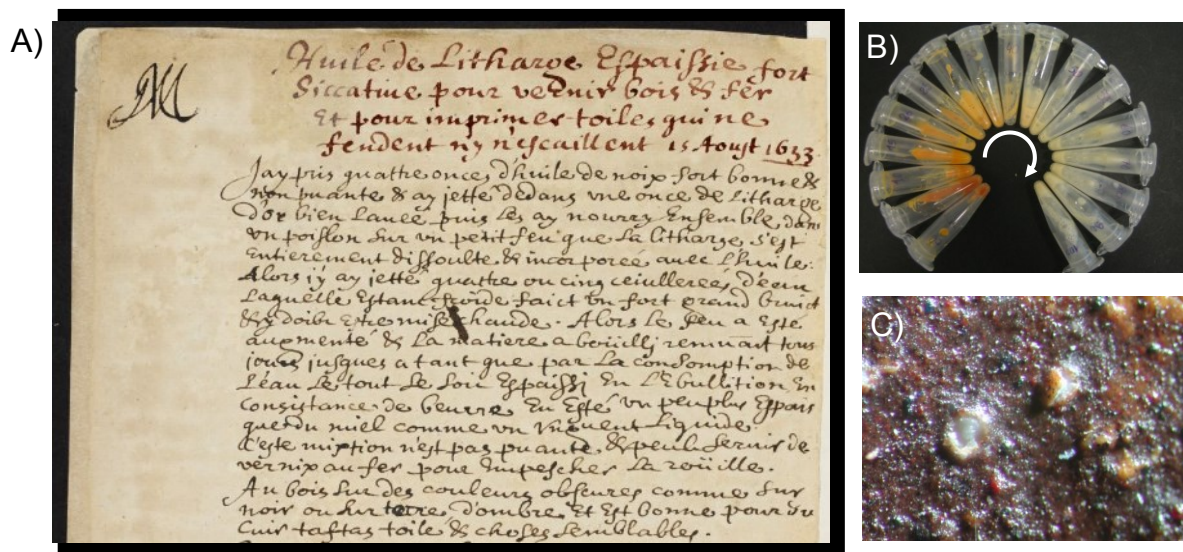 A)
Huile de Litharge Espaissie fort
Siccative pour vernir bois & fer
Et pour imprimer toiles qui ne
fendent ny n'escaillent 15 Aoust 1633
Jay pris quattre onces d'huile de noix fort bonne &
non puante & ay jetté dedans une once de Litharge
d'or bien lavée puis les ay nourry Ensemble dans
un poislon sur un petit feu que la litharge s'est
Entierement dissoulte & incorporée avec l'huile.
Alors j'y ay jetté quattre ou cinq ceiullerées d'eau
Laquelle Estant froide faict un fort grand bruict
& y doibt estre mise chaude. Alors le feu a Esté
augmenté & La matiere a bouilly remuant tous
jours jusques a tant que par La consomption de
L'eau Le tout Se soit Espaissi En L'Ebullition En
consistance de beurre En Esté un peu plus Espais
que du miel comme un Unguent Liquide.
Ceste mixtion n'est pas puante & peult servir de
vernix au fer pour Empescher La roüille.
Au bois sur des couleurs obscures comme sur
noir ou sur terre d'ombre, Et Est bonne pour
cuir taftas toile & choses semblables.
B)
C)